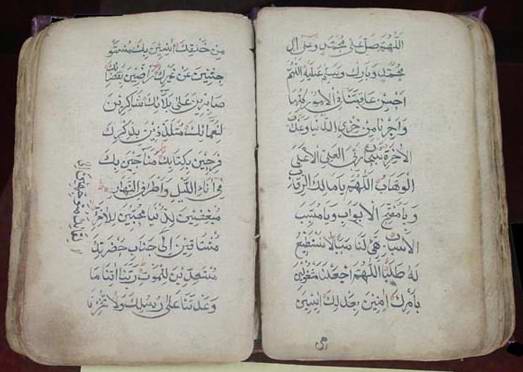 اللهم صل على محمد وعلى آل
محمد وبارك وسلم عليه اللهم
احسن عاقبتنا في الامور كلها
واجرنا من خزي الدنيا وعذاب
الاخرة سبحان ربي العلي الاعلى
الوهاب اللهم يا مالك الرقاب
ويا مفتح الابواب ويا مسبب
الاسباب هيئ لنا سببا لا نستطيع
له طلبا اللهم اجعلنا مشغولين
بامرك امنين بعدلك ايسين
من خلقك انسين بك مستو
حشين عن غيرك راضين بقضائك
صابرين على بلائك شاكرين
لنعمائك متلذذين بذكرك
فرحين بكتابك مناجين بك
في اناء الليل واطراف النهار
مبغضين للدنيا محبين للاخرة
مشتاقين الى جناب حضرتك
مستعدين للموت ربنا اتنا ما
وعدتنا على رسلك ولا تخزنا